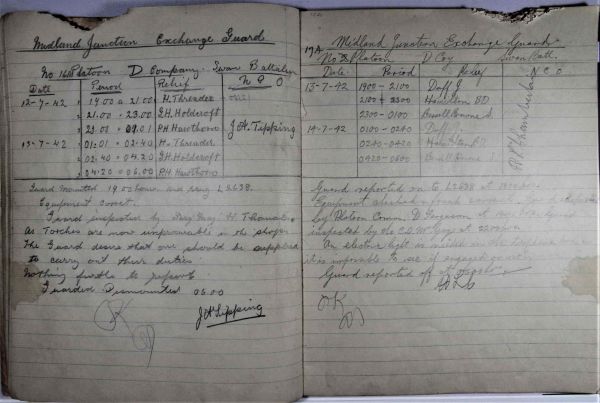 Midland Junction Exchange Guard
No 16 Platoon D Company. Swan Battalion
Date Period Relief N C O
12-7-42 19.00 to 21.00 H. Threader
" 21.00 " 23.00 J.H. Holdcroft
" 23.00 " 01.01 P.H. Hawthorne J.A. Tipping
13-7-42 01.01 " 02.40 H. Threader
" 02.40 " 04.20 J.H. Holdcroft
" 04.20 " 06.00 P.H. Hawthorne
Guard mounted 19.00 hours and rang L2638.
Equipment correct.
Guard inspected by H. Thomas
As Torches are now unprocurable in the shops
The Guard desire that one should be supplied
to carry out their duties
Nothing further to report
Guard Dismounted 06.00
J.A. Tipping
OK
Midland Junction Exchange Guard
No Platoon D Coy Swan Batt.
Date Period Relief N.C.O.
13-7-42 1900 - 2100 Duff J
2100 - 2300 Hamilton D.D
2300 - 0100
14-7-42 0100 - 0240 Duff J
0240 - 0420 Hamilton D.D
0420 - 0600
Guard reported on to L2638 at
Equipment checked
by Platoon Comm. D. Ferguson at Guard
inspected by the C.S.M. at 2200
An electric light is needed in the
it is impossible to see if engaged
Guard reported off at 0600
OK